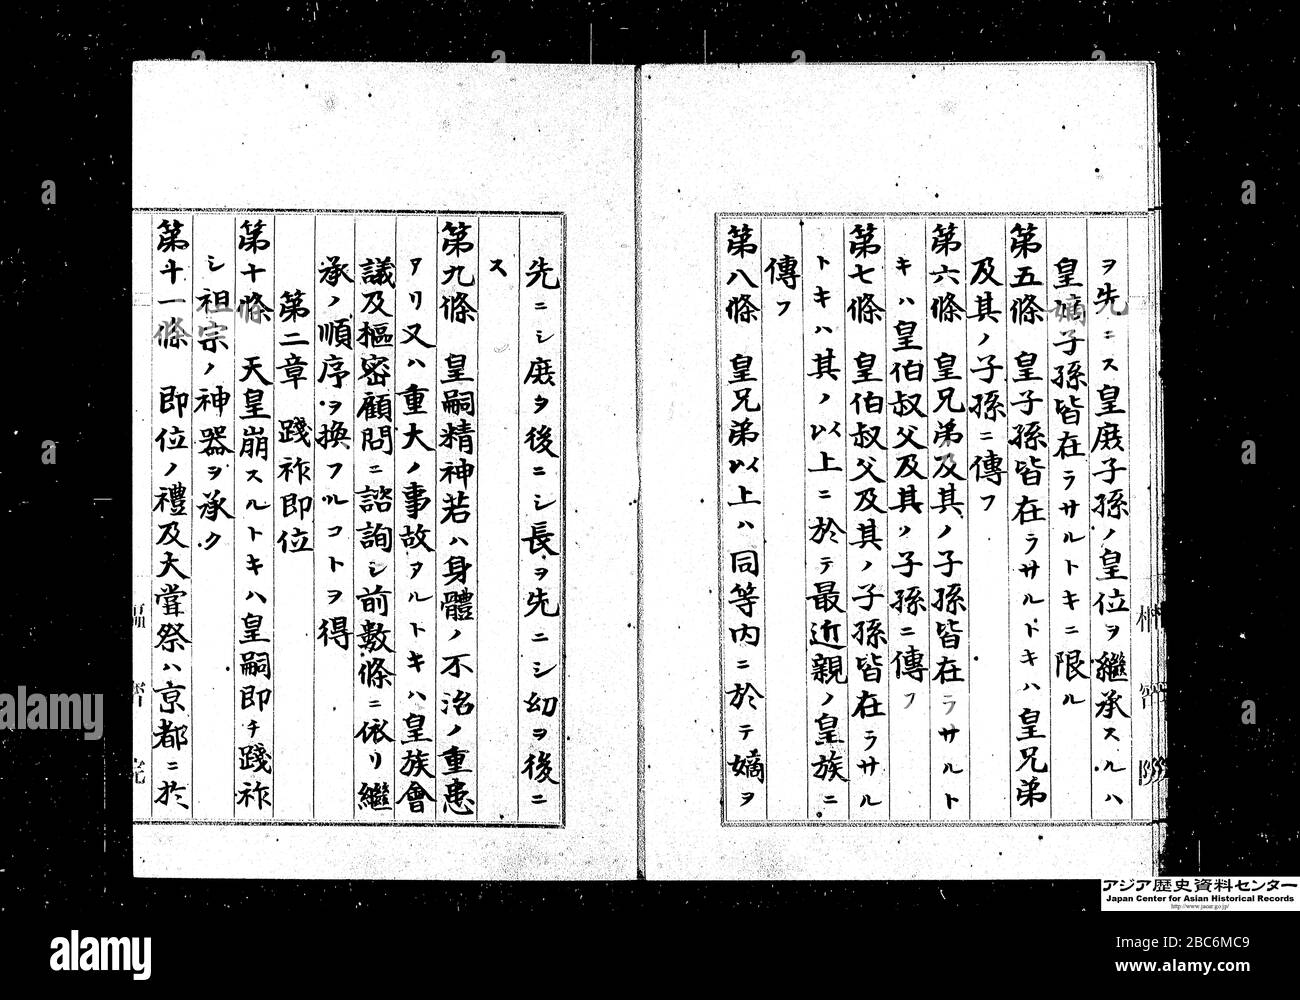 ヲ先ニス皇庶子孫ノ皇位ヲ繼承スルハ
皇嫡子孫皆在ラサルトキニ限ル
第五條 皇子孫皆在ラサルトキハ皇兄弟
及其ノ子孫ニ傳フ
第六條 皇兄弟及其ノ子孫皆在ラサルト
キハ皇伯叔父及其ノ子孫ニ傳フ
第七條 皇伯叔父及其ノ子孫皆在ラサル
トキハ其ノ以上ニ於テ最近親ノ皇族ニ
傳フ
第八條 皇兄弟以上ハ同等內ニ於テ嫡ヲ
先ニシ庶ヲ後ニシ長ヲ先ニシ幼ヲ後ニ
ス
第九條 皇嗣精神若ハ身體ノ不治ノ重患
アリ又ハ重大ノ事故アルトキハ皇族會
議及樞密顧問ニ諮詢シ前數條ニ依リ繼
承ノ順序ヲ換フルコトヲ得
第二章 踐祚即位
第十條 天皇崩スルトキハ皇嗣即チ踐祚
シ祖宗ノ神器ヲ承ク
第十一條 即位ノ禮及大嘗祭ハ京都ニ於
アジア歴史資料センター
Japan Center for Asian Historical Records
http://www.jacar.go.jp/
a
alamy
Image ID: 2BC6MC9
www.alamy.com